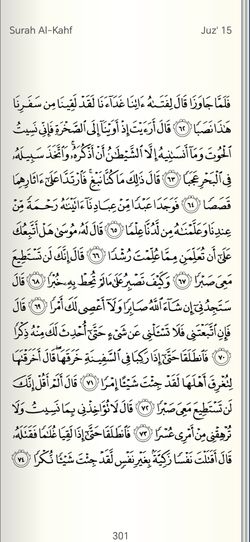 Surah Al-Kahf Juz' 15
فَلَمَّا جَاوَزَا قَالَ لِفَتَىٰهُ ءَاتِنَا غَدَآءَنَا لَقَدْ لَقِينَا مِن سَفَرِنَا
هَٰذَا نَصَبًا ٦٢ قَالَ أَرَءَيْتَ إِذْ أَوَيْنَآ إِلَى ٱلصَّخْرَةِ فَإِنِّى نَسِيتُ
ٱلْحُوتَ وَمَآ أَنسَىٰنِيهُ إِلَّا ٱلشَّيْطَٰنُ أَنْ أَذْكُرَهُۥ وَٱتَّخَذَ سَبِيلَهُۥ
فِى ٱلْبَحْرِ عَجَبًا ٦٣ قَالَ ذَٰلِكَ مَا كُنَّا نَبْغِ فَٱرْتَدَّا عَلَىٰٓ ءَاثَارِهِمَا
قَصَصًا ٦٤ فَوَجَدَا عَبْدًا مِّنْ عِبَادِنَآ ءَاتَيْنَٰهُ رَحْمَةً مِّنْ
عِندِنَا وَعَلَّمْنَٰهُ مِن لَّدُنَّا عِلْمًا ٦٥ قَالَ لَهُۥ مُوسَىٰ هَلْ أَتَّبِعُكَ
عَلَىٰٓ أَن تُعَلِّمَنِ مِمَّا عُلِّمْتَ رُشْدًا ٦٦ قَالَ إِنَّكَ لَن تَسْتَطِيعَ
مَعِىَ صَبْرًا ٦٧ وَكَيْفَ تَصْبِرُ عَلَىٰ مَا لَمْ تُحِطْ بِهِۦ خُبْرًا ٦٨ قَالَ
سَتَجِدُنِىٓ إِن شَآءَ ٱللَّهُ صَابِرًا وَلَآ أَعْصِى لَكَ أَمْرًا ٦٩ قَالَ
فَإِنِ ٱتَّبَعْتَنِى فَلَا تَسْـَٔلْنِى عَن شَىْءٍ حَتَّىٰٓ أُحْدِثَ لَكَ مِنْهُ ذِكْرًا
٧٠ فَٱنطَلَقَا حَتَّىٰٓ إِذَا رَكِبَا فِى ٱلسَّفِينَةِ خَرَقَهَا قَالَ أَخَرَقْتَهَا
لِتُغْرِقَ أَهْلَهَا لَقَدْ جِئْتَ شَيْـًٔا إِمْرًا ٧١ قَالَ أَلَمْ أَقُلْ إِنَّكَ
لَن تَسْتَطِيعَ مَعِىَ صَبْرًا ٧٢ قَالَ لَا تُؤَاخِذْنِى بِمَا نَسِيتُ وَلَا
تُرْهِقْنِى مِنْ أَمْرِى عُسْرًا ٧٣ فَٱنطَلَقَا حَتَّىٰٓ إِذَا لَقِيَا غُلَٰمًا فَقَتَلَهُۥ
قَالَ أَقَتَلْتَ نَفْسًا زَكِيَّةًۢ بِغَيْرِ نَفْسٍ لَّقَدْ جِئْتَ شَيْـًٔا نُّكْرًا ٧٤
301